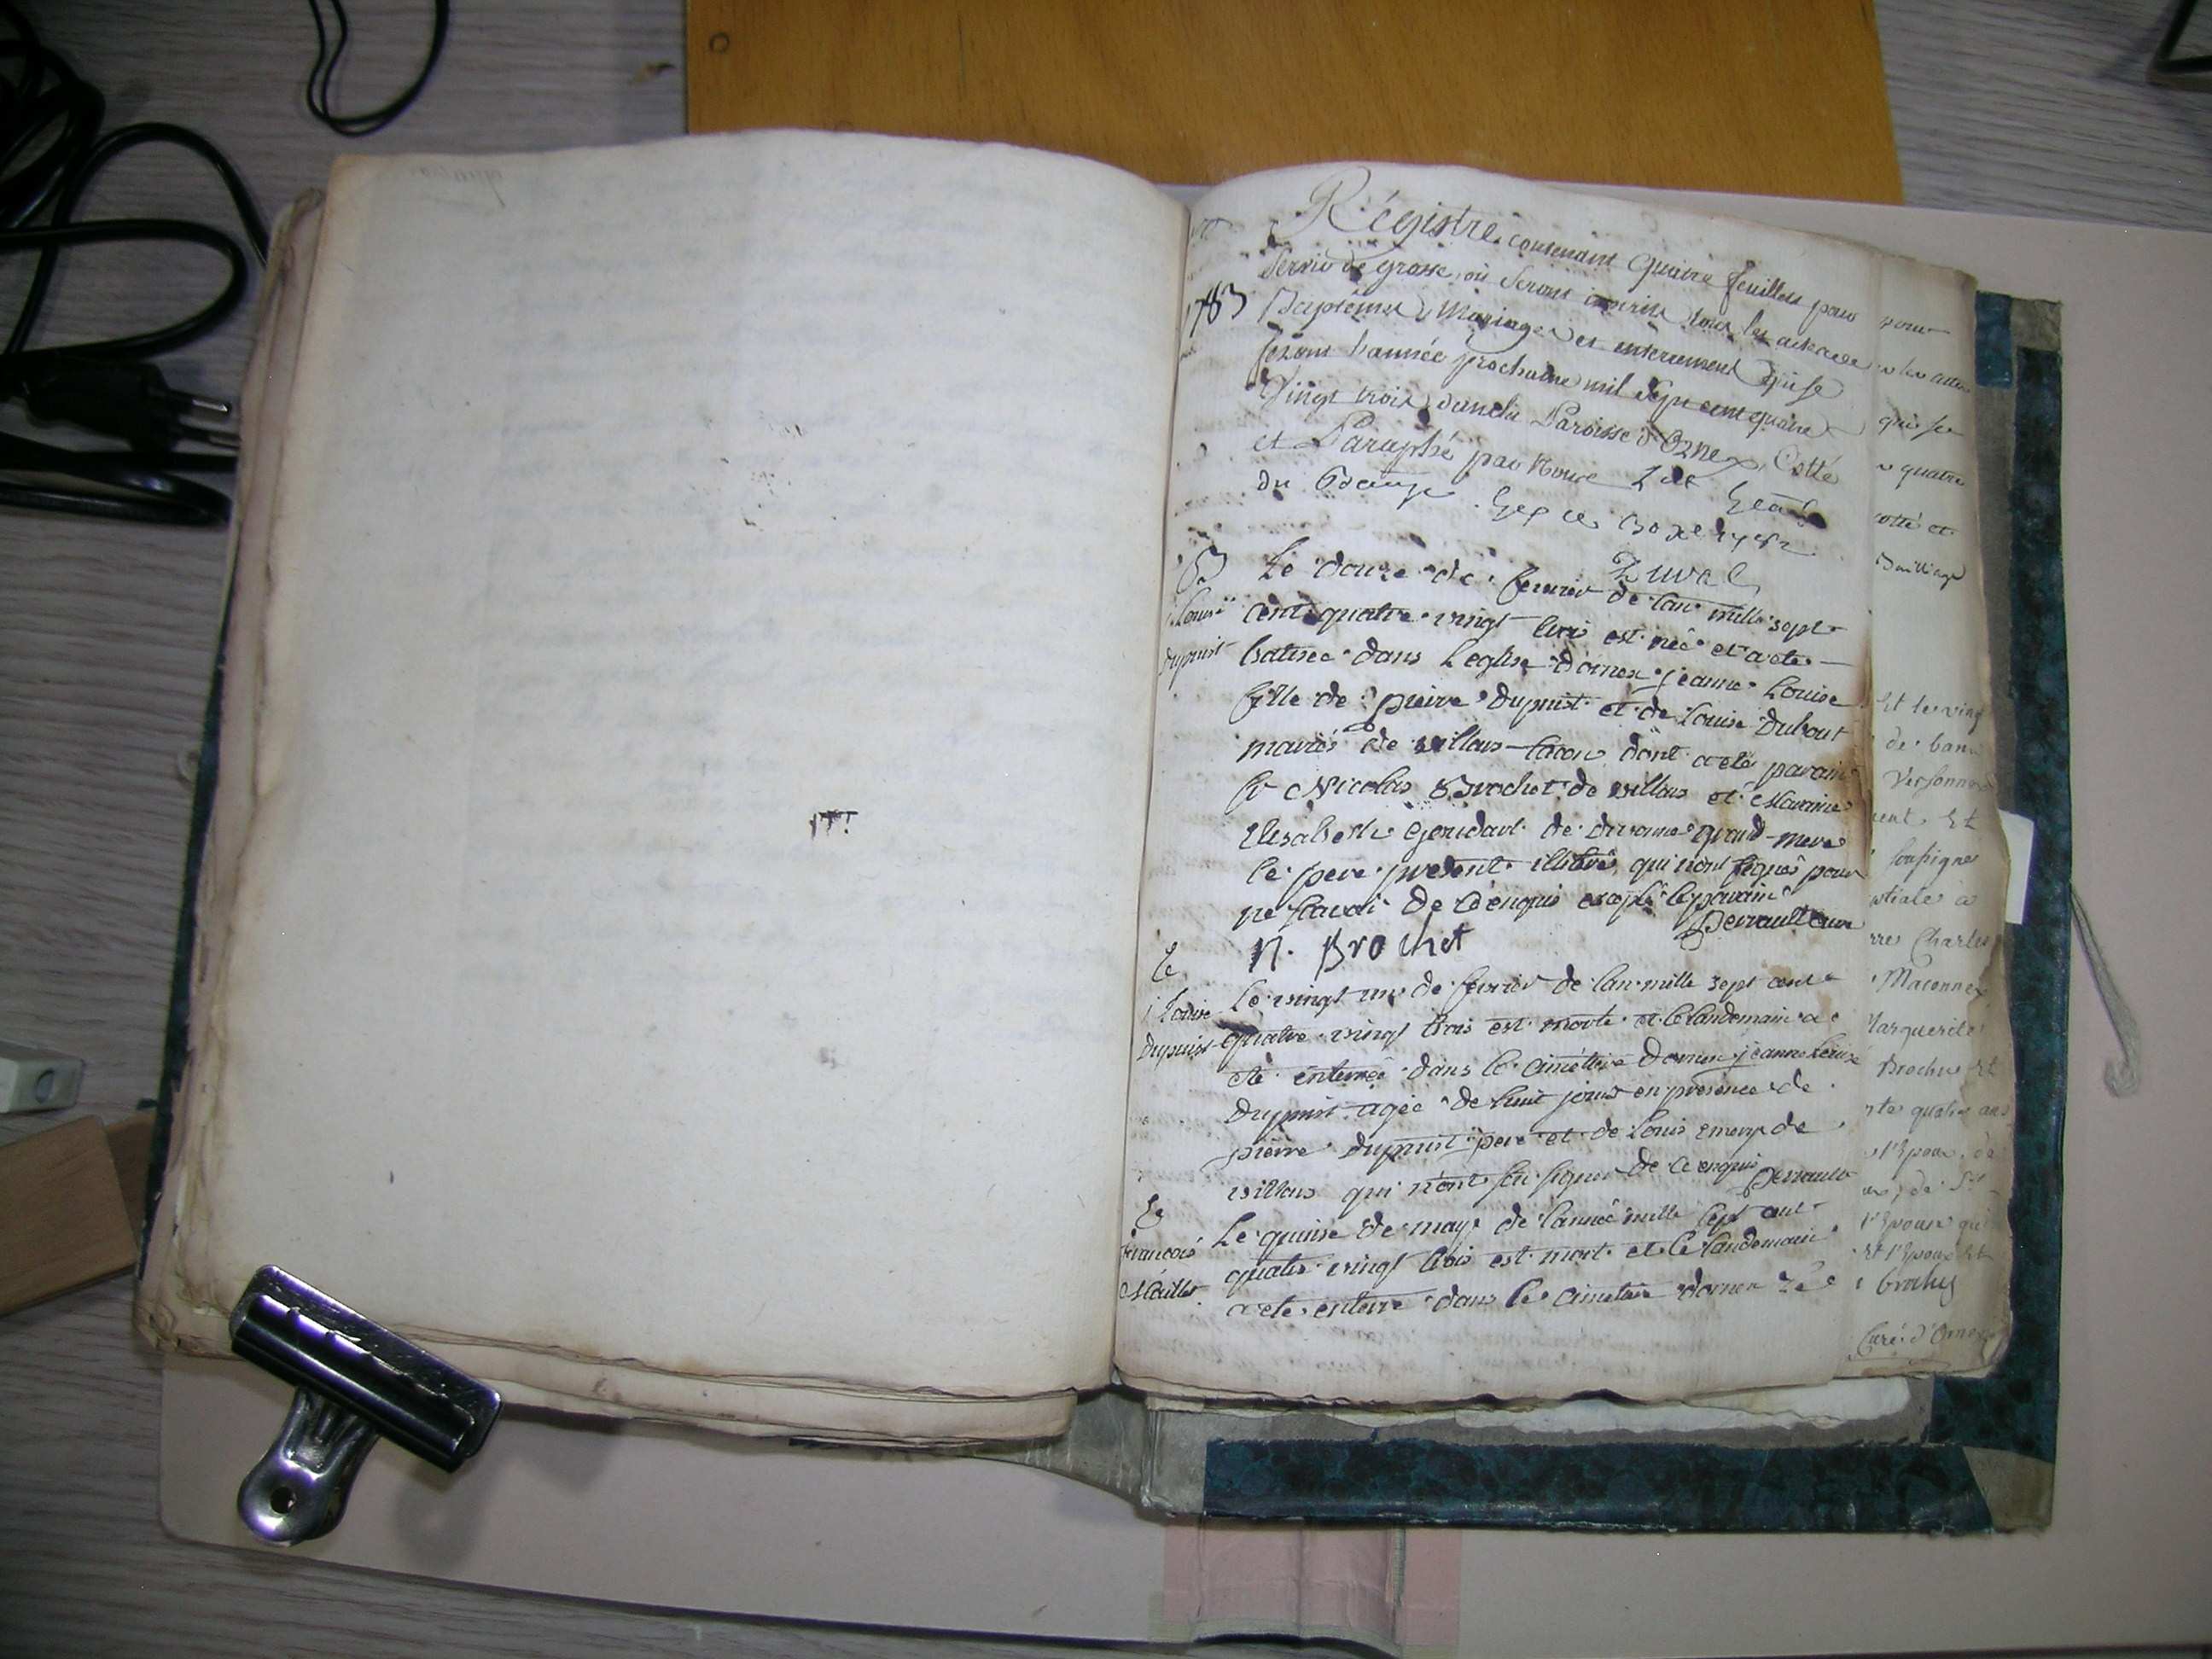 Régistre contenant Quatre feuillets pour
servir de grosse, où seront inscrits tous les actes de
1783
Baptêmes, Mariages et enterrement qui se
feront l'année prochaine mil sept cent quatre
Vingt trois, dans la Paroisse d'Ornex, Cotté
et Paraphé par Nous
Gex ce 30 xe 1782
Duval
B
Louise
dupuit
Le douze de fevrier de lan mille sept
cent quatre vingt trois est née et a ete
batisee dans l'eglise dornex jeanne Louise
fille de pierre dupuit et de Louise Dubout
mariés de villars tacon dont a eté parain
sr Nicolas Brochet de villars et Maraine
Elisabeth de divonne grand-mere
le pere present illitéré, qui n'ont signés pour
ne scavoir de ce enquis excepté le parain
Perrault curé
n. Brochet
E
j Louise
Dupuit
Le vingt un de fevrier de lan mille sept cent
quatre vingt trois est morte et le landemain a
eté enterrée dans le cimettire dornex jeanne Louise
Dupuit agée de huit jours en presence de
pierre dupuit pere et de Louis emery de
villars qui n'ont sçu signer de ce enquis
Perrault
E
francois
Le quinse de may de l'année mille sept cent
quatre vingt trois est mort et le landemain
a ete enterre dans le cimetire dornex
pour
qui se
quatre
cotté et
Bailliage
Et le ving
de bans
soussigné
Charles
Maconnex
Marguerite
Brochu et
quatre ans
l'Epoux de
l'Epouse qui
et l'Epoux et
Curé d'Ornex